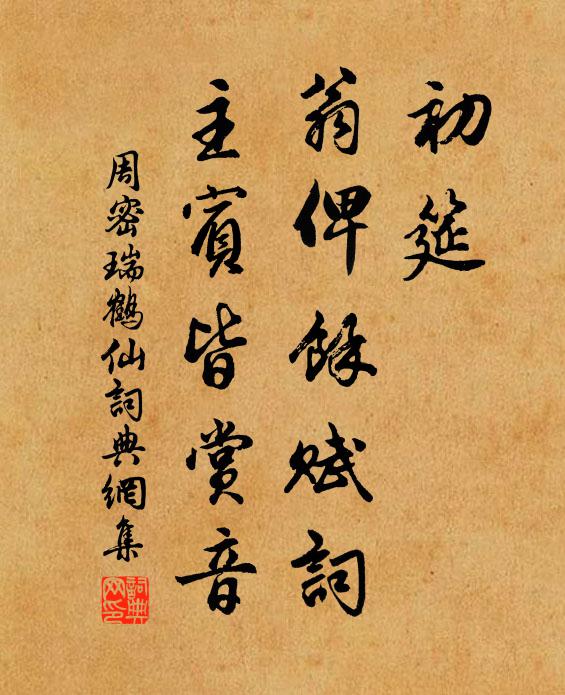 初筵
翁俾餘賦詞
主賓皆賞音
周密瑞鶴仙詞典網集
詞典网印